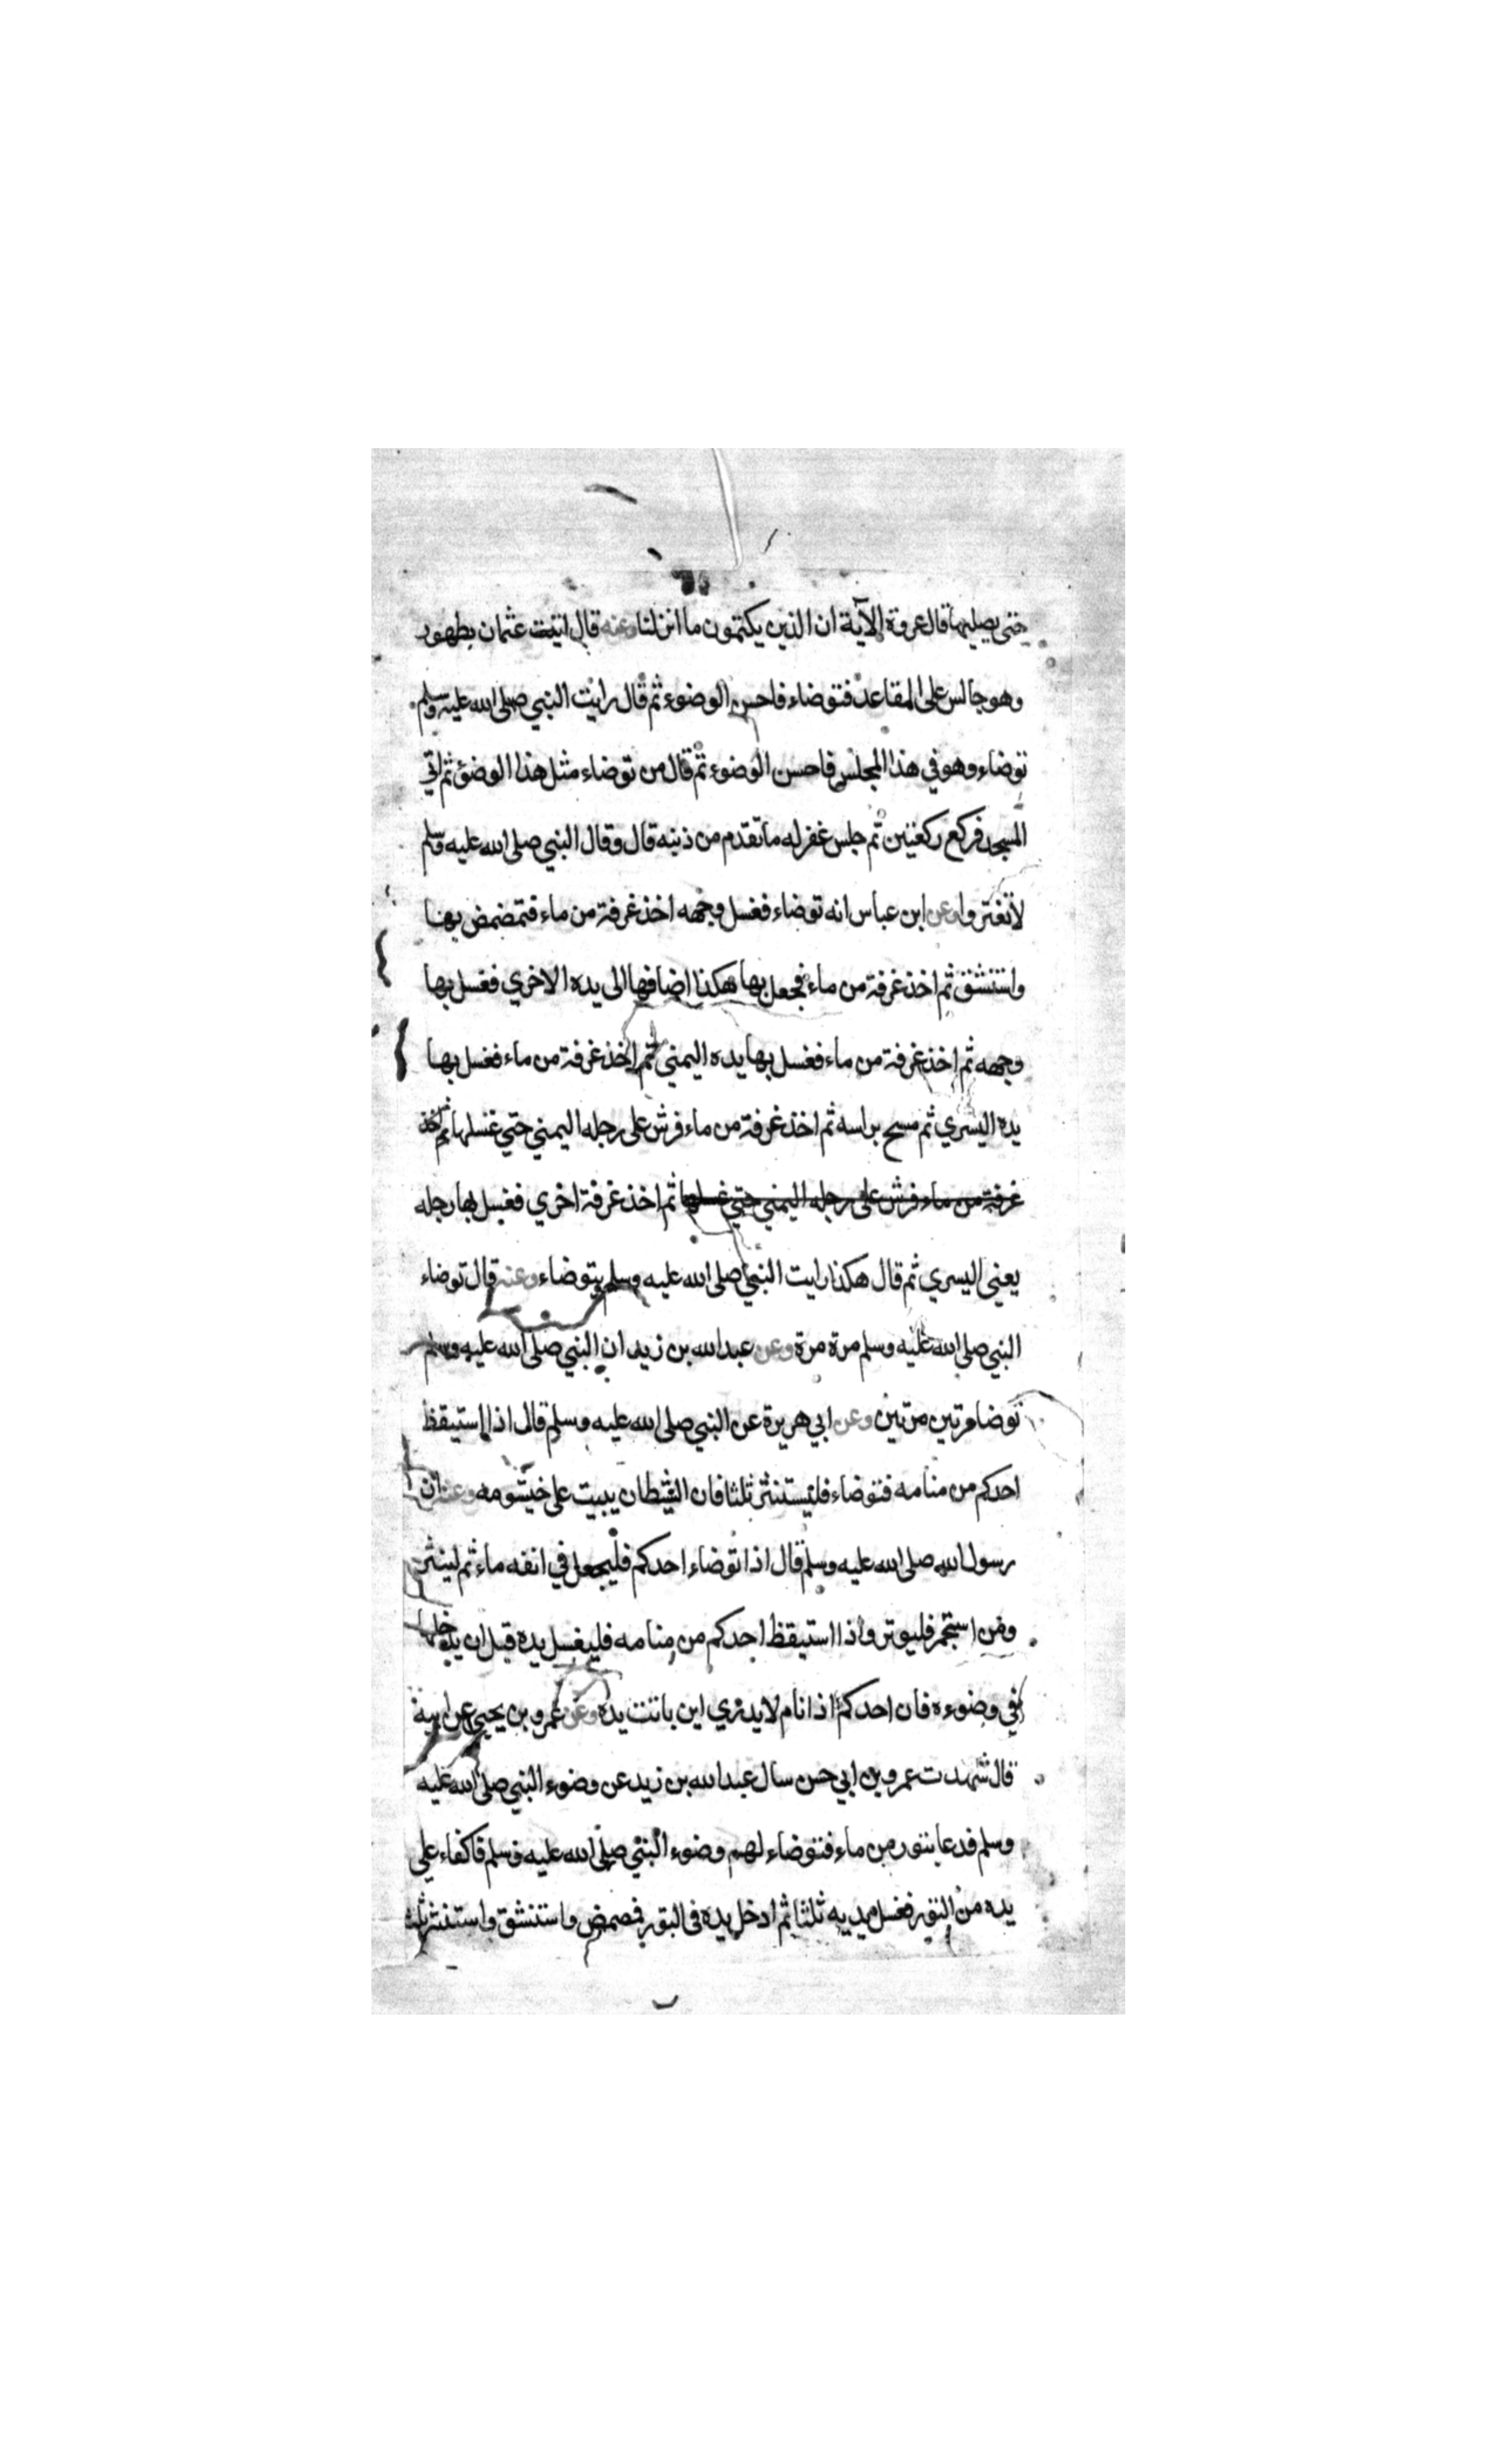 حتى يصليها قال عروة الآية ان الذين يكتمون ما انزلنا وعنه قال اتيت عثمان بطهور
وهو جالس على المقاعد فتوضاء فاحسن الوضوء ثم قال رايت النبي صلى الله عليه وسلم
توضاء وهو في هذا المجلس فاحسن الوضوء ثم قال من توضاء مثل هذا الوضؤ ثم اتى
المسجد فركع ركعتين ثم جلس غفر له ما تقدم من ذنبه قال وقال النبي صلى الله عليه وسلم
لا تغتروا وعن ابن عباس انه توضاء فغسل وجهه اخذ غرفة من ماء فتمضمض بها
واستنشق ثم اخذ غرفة من ماء فجعل بها هكذا اضافها الى يده الاخري فغسل بها
وجهه ثم اخذ غرفة من ماء فغسل بها يده اليمني ثم اخذ غرفة من ماء فغسل بها
يده اليسري ثم مسح براسه ثم اخذ غرفة من ماء فرش على رجله اليمني حتي غسلها ثم اخذ
غرفة من ماء فرش على رجله اليمني حتي غسلها ثم اخذ غرفة اخري فغسل بها رجله
يعني اليسري ثم قال هكذا رايت النبي صلى الله عليه وسلم يتوضاء وعنه قال توضاء
النبي صلى الله عليه وسلم مرة مرة وعن عبد الله بن زيد ان النبي صلى الله عليه وسلم
توضا مرتين مرتين وعن ابي هريرة عن النبي صلى الله عليه وسلم قال اذا استيقظ
احدكم من منامه فتوضاء فليستنثر ثلثا فان الشيطان يبيت على خيشومه وعنه ان
رسول الله صلى الله عليه وسلم قال اذا توضاء احدكم فليجعل في انفه ماء ثم لينثر
ومن استجمر فليوتر واذا استيقظ احدكم من منامه فليغسل يده قبل ان يدخلها
في وضوءه فان احدكم اذا نام لا يدري اين باتت يده وعن عمرو بن يحيي عن ابيه
قال شهدت عمرو بن ابي حسن سال عبد الله بن زيد عن وضوء النبي صلى الله عليه
وسلم فدعا بتور من ماء فتوضاء لهم وضوء النبي صلى الله عليه وسلم فاكفاء علي
يده من التور فغسل يديه ثلثا ثم ادخل يده في التور فمضمض واستنشق واستنثر ثلث